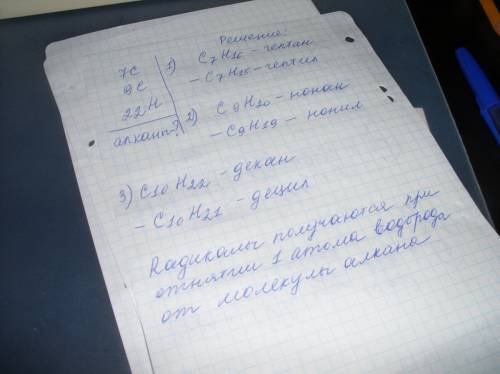 Решение:
7C
9C
22H
алканы?
1) C7H16 - гептан
- C7H15 - гептил
2) C9H20 - нонан
- C9H19 - нонил
3) C10H22 - декан
- C10H21 - децил
Радикалы получаются при
отнятии 1 атома водорода
от молекулы алкана